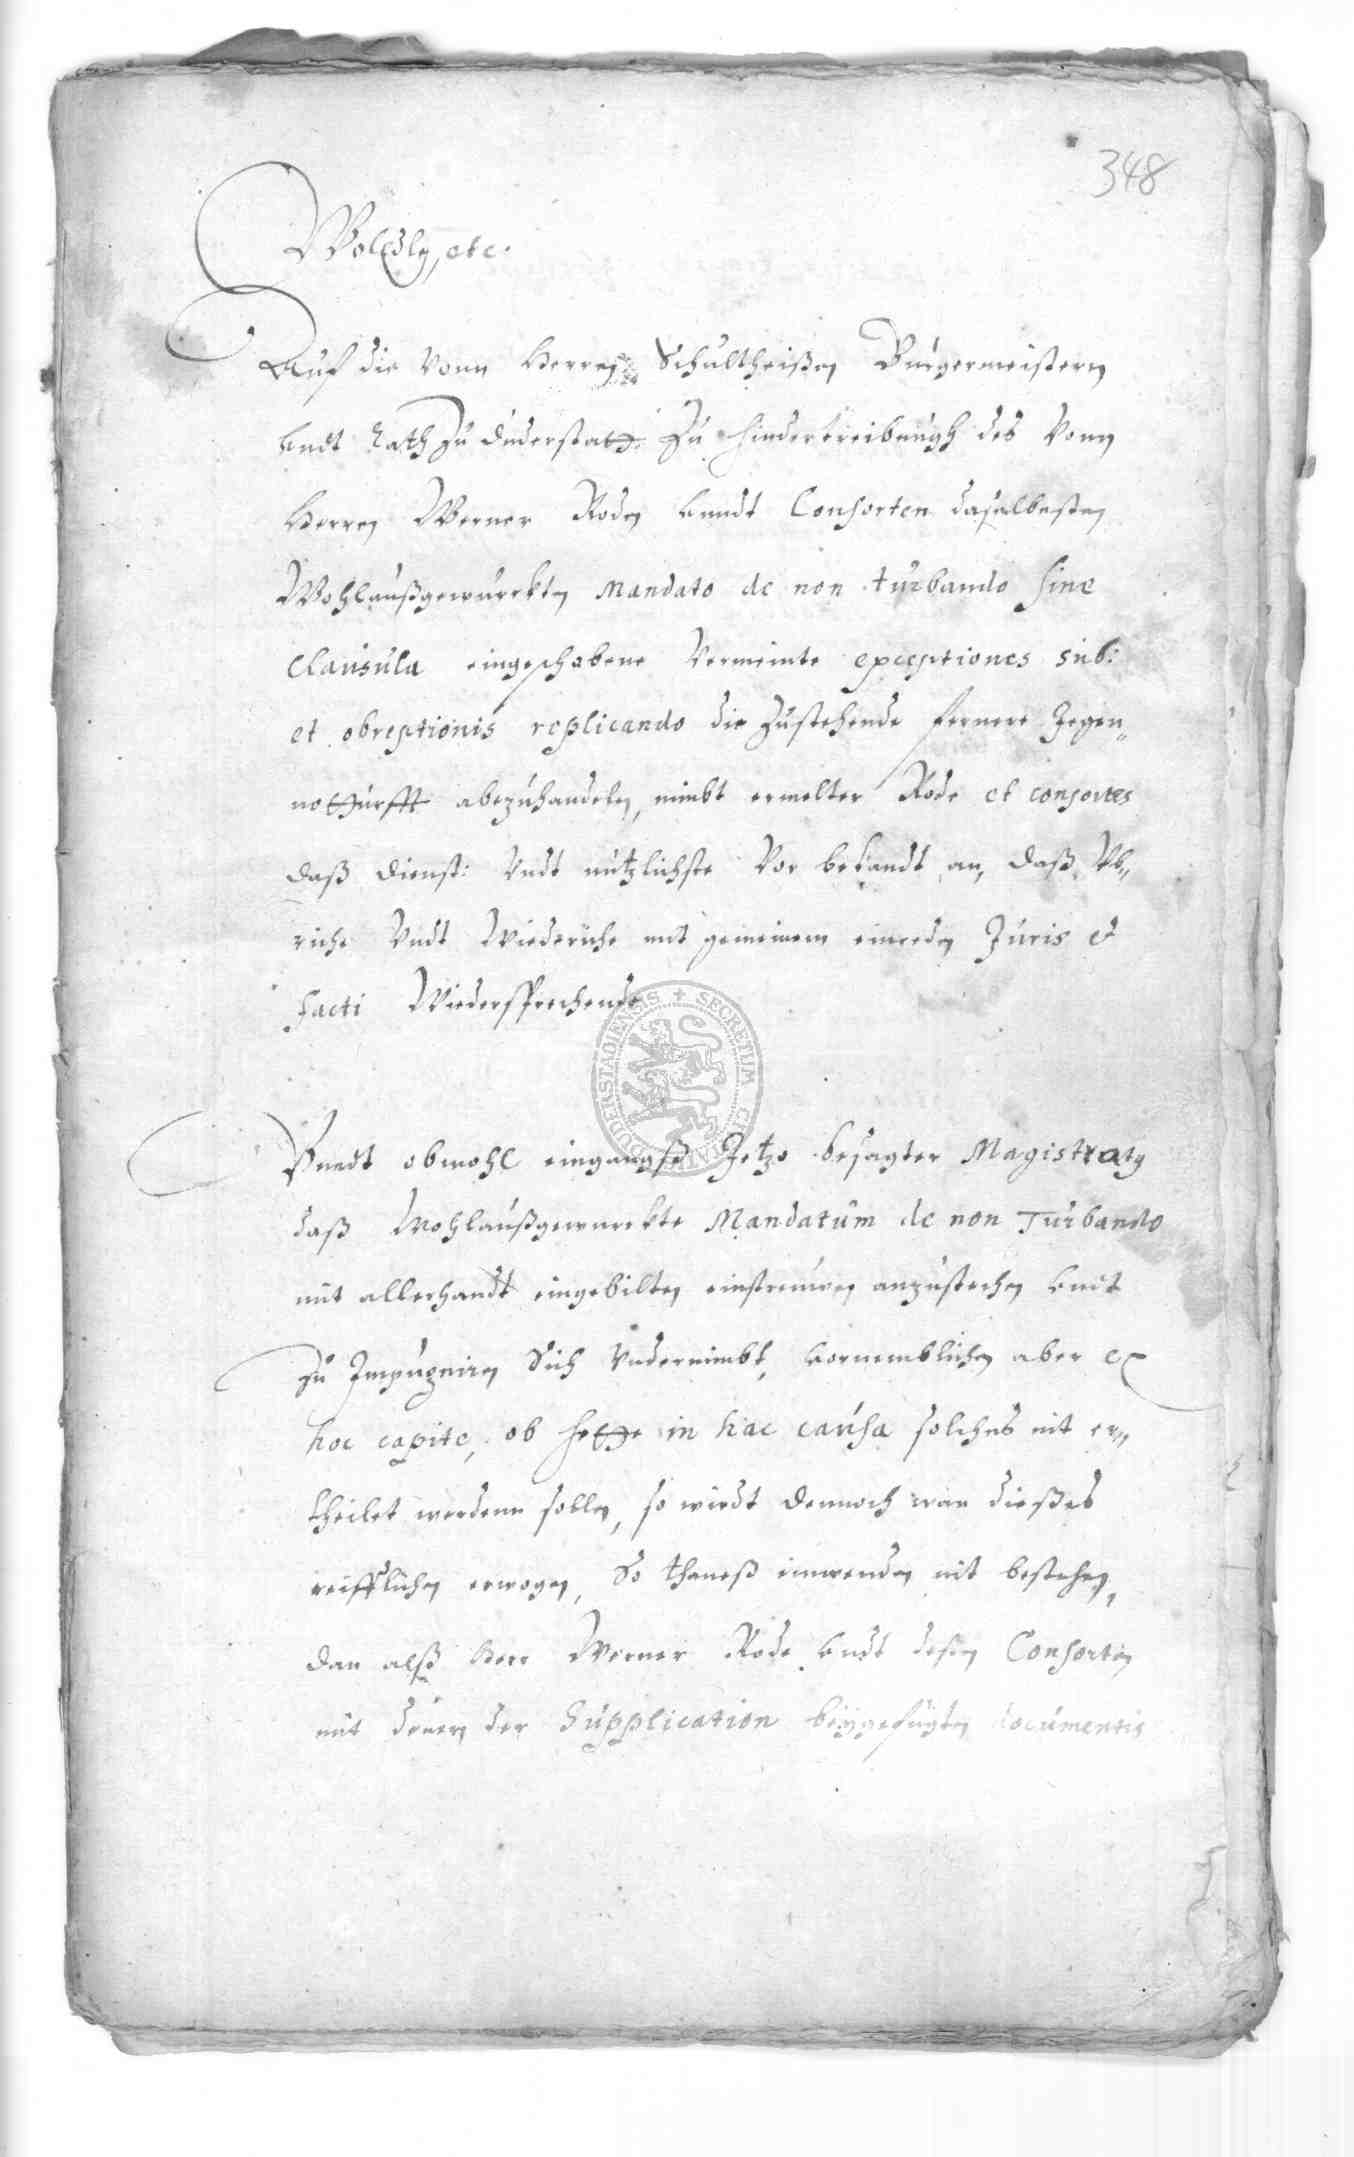 348
WolEdlg, etc.
Auf die vonn Herren Schultheißen Bürgermeistern
undt Rath zu Duderstatt zu hindertreibungh des vonn
Herren Werner Roden unndt Consorten daselbesten
Wohlaußgewürckten Mandato de non turbando sine
Clausula eingeschobene vermeinte exceptiones sub:
et obreptionis replicando die zustehende fernere gegen„
notturfft abezuhandelen, nimbt ermelter Rode et consortes
daß dienst: undt nützlichste vor bekandt an, daß Ub„
riche undt wiedriche mit gemeinem einreden Juris et
facti wiedersprechende
SECRETUM DUDERSTADIENSIS
Unndt obwohl eingangß Jetzo besagter Magistratus
daß wohlaußgewürckte Mandatum de non Turbando
mit allerhandt eingebilten einstreuwen anzustechen undt
zu Impugniren Sich undernimbt, vornemblichen aber ex
hoc capite, ob hette in hac causa solches nit er„
theilet werdenn sollen, so wirdt dennoch wan dießes
reifflichen erwogen, So thaneß einwenden nit bestehen,
dan alß Herr Werner Rode undt deßen Consorten
mit denen der Supplication beygefügten documentis